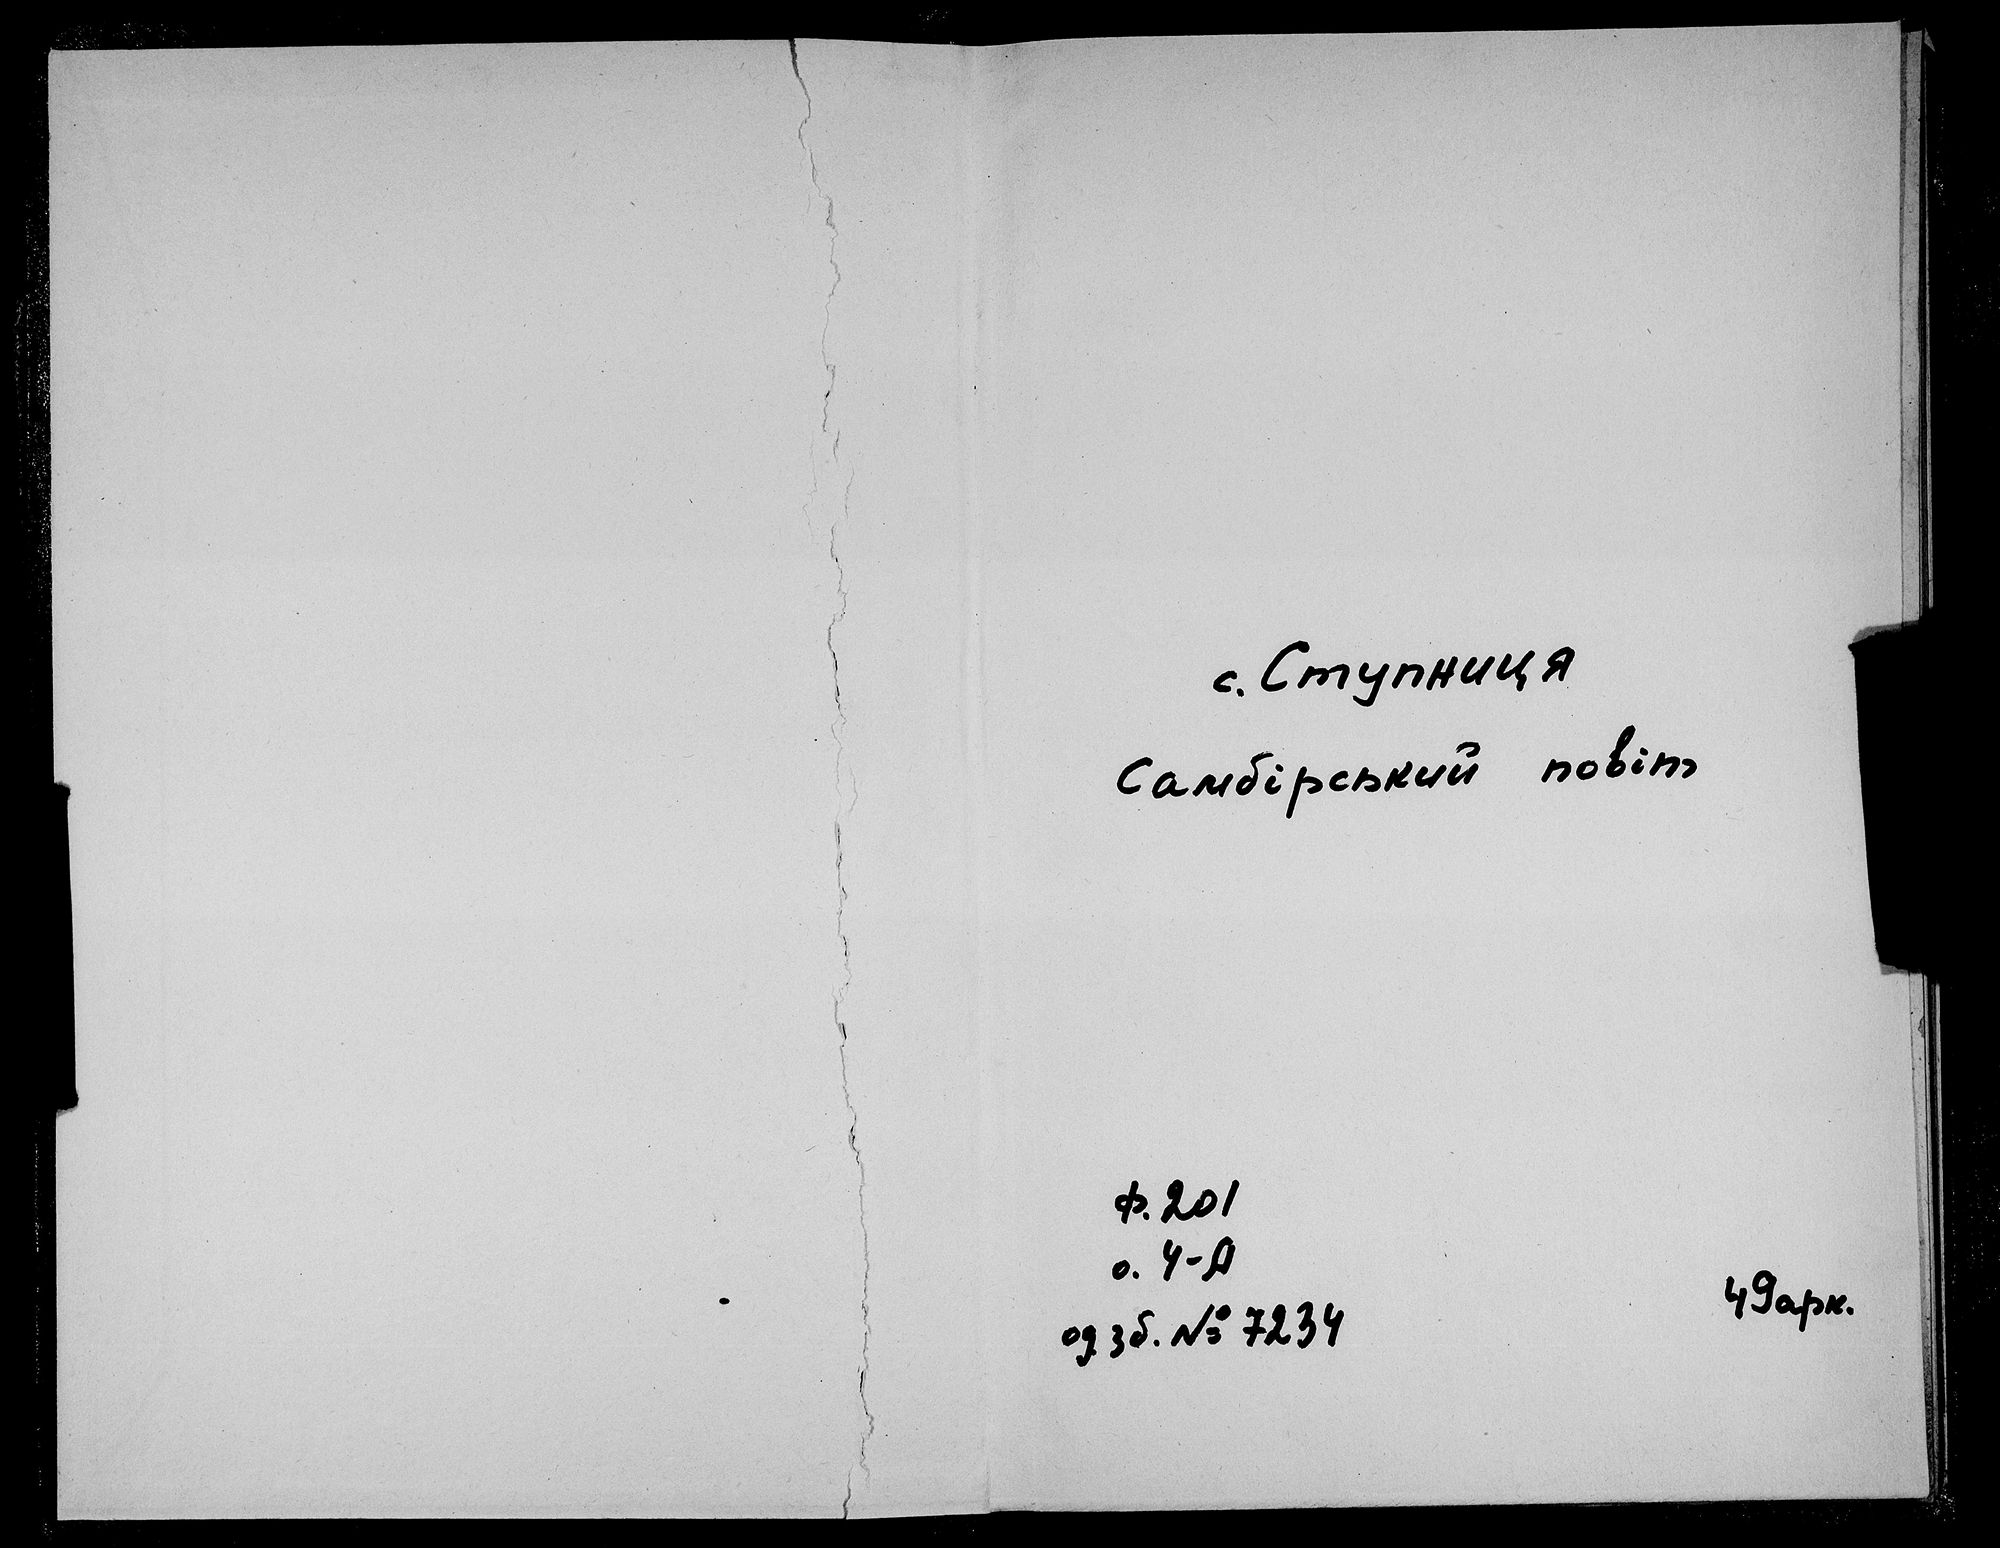 с. Ступниця
Самбірський повіт
Ф. 201
о. 4-А
49 арк.
од. зб. № 7234